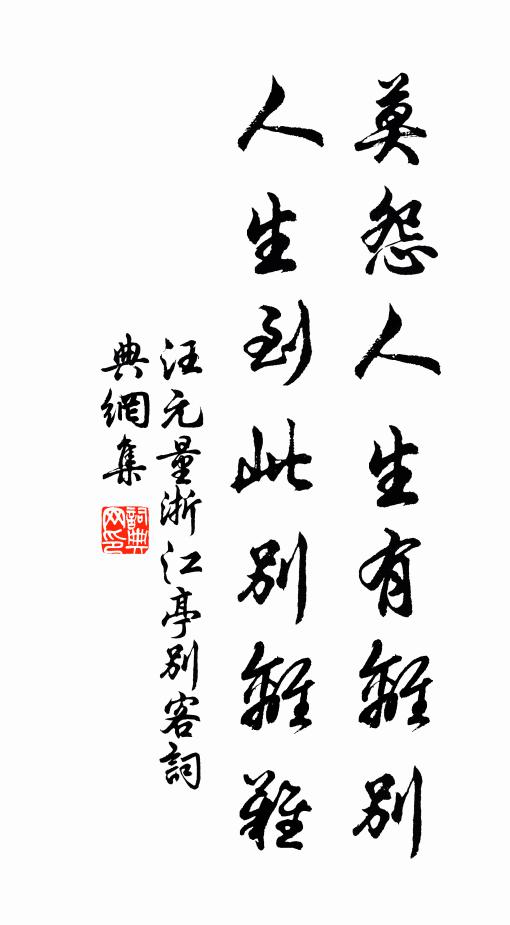 莫怨人生有離別
人生到此別離難
汪元量浙江亭別客詞
典網集
詞典
网印